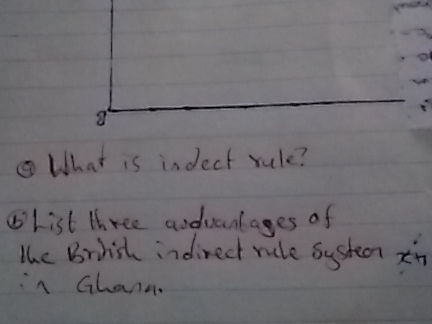 a) What is indect rule?
b) List three advantages of
the British indirect rule System
in Ghana.